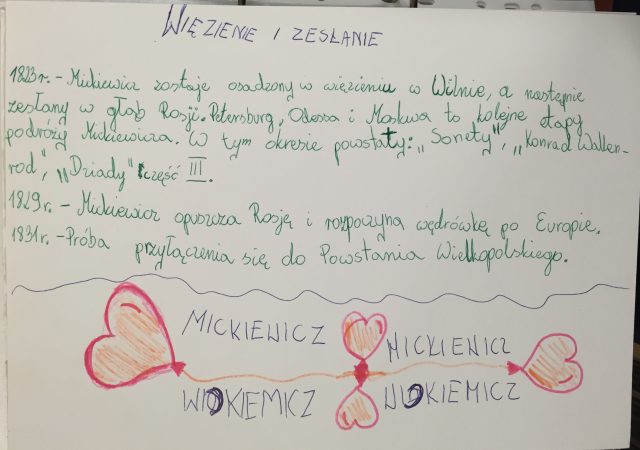 WIĘZIENIE I ZESŁANIE
1823r. - Mickiewicz zostaje osadzony w więzieniu w Wilnie, a następnie
zesłany w głąb Rosji. Petersburg, Odessa i Moskwa to kolejne etapy
podróży Mickiewicza. W tym okresie powstały: „Sonety", „Konrad Wallen-
rod", „Dziady" część III.
1829r. - Mickiewicz opuszcza Rosję i rozpoczyna wędrówkę po Europie.
1831r. - Próba przyłączenia się do Powstania Wielkopolskiego.
MICKIEWICZ MICKIEWICZ